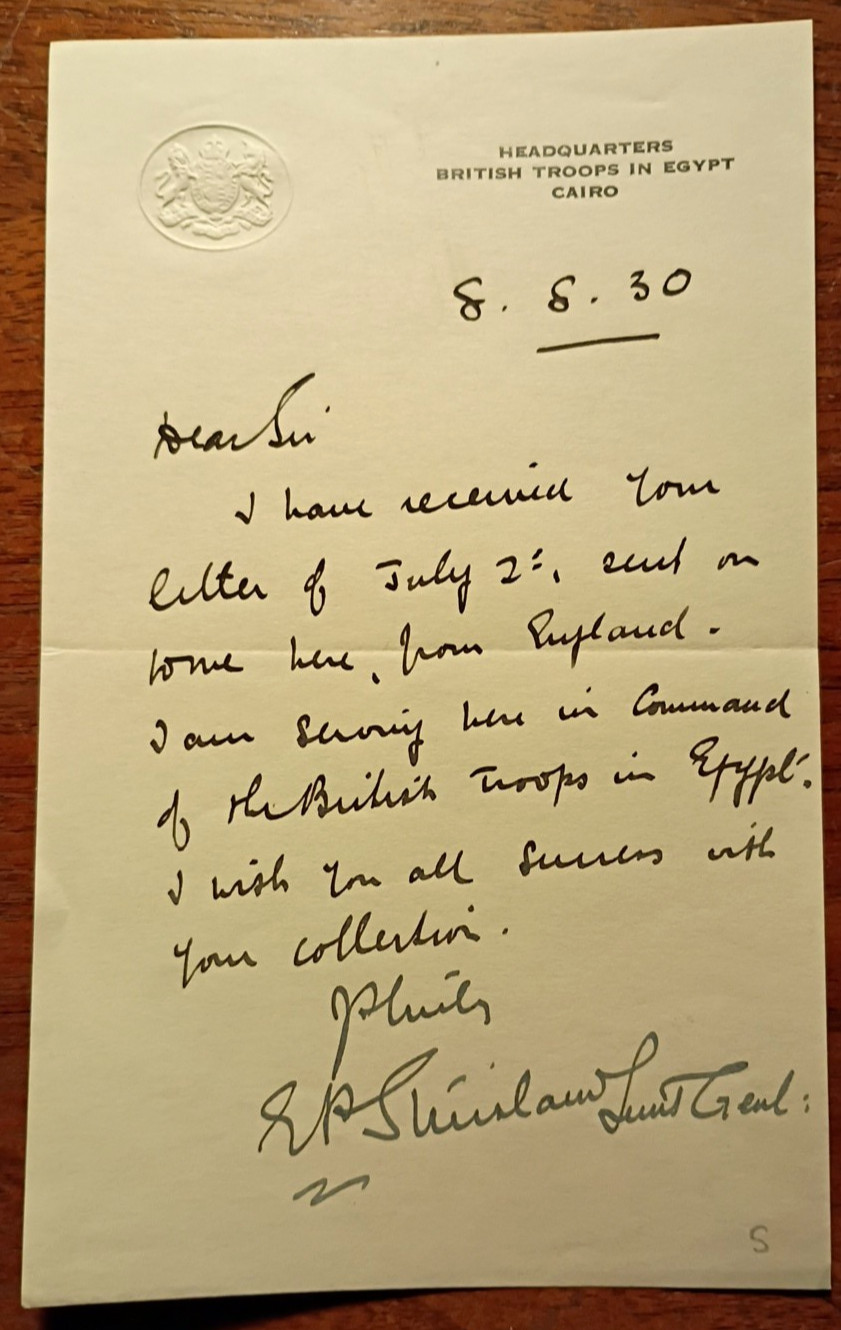 HEADQUARTERS
BRITISH TROOPS IN EGYPT
CAIRO
8. 8. 30
Dear Sir
I have received your
letter of July 2d, sent on
to me here, from England.
I am serving here in Command
of the British Troops in Egypt.
I wish you all success with
your collection.
EP Strickland Lieut Genl:
S